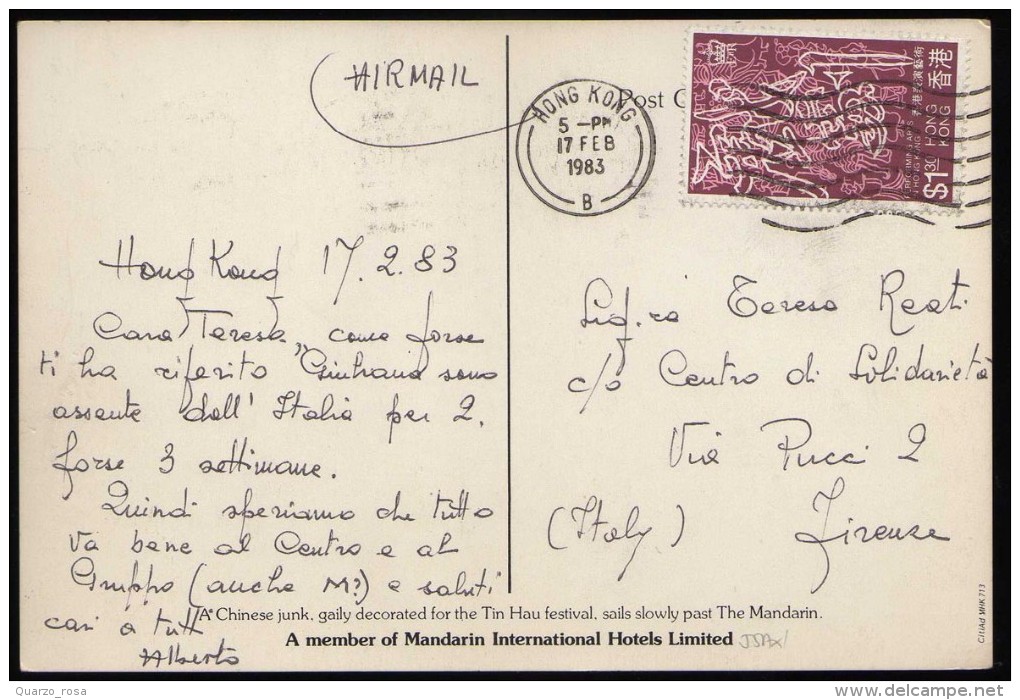 AIRMAIL
Post
HONG KONG
5 - PM
17 FEB
1983
B
香港
香港表演藝術
HONG KONG
PERFORMING ARTS
IN HONG KONG
$1.30
Hong Kong 17.2.83
Cara Teresa, come forse
ti ha riferito Giuliana sono
assente dall' Italia per 2.
forse 3 settimane.
Quindi speriamo che tutto
va bene al Centro e al
Gruppo (anche M?) e saluti
cari a tutti
Alberto
Sig.ra Teresa Reati
c/o Centro di Solidarietà
Via Pucci 2
(Italy) Firenze
A Chinese junk, gaily decorated for the Tin Hau festival, sails slowly past The Mandarin.
A member of Mandarin International Hotels Limited
Quarzo_rosa
www.delcampe.net